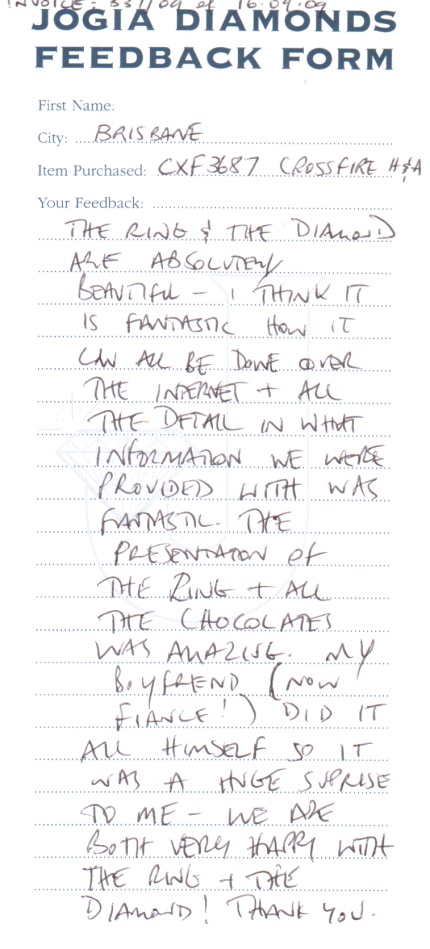 INVOICE: 331109 of 16.09.09
JOGIA DIAMONDS
FEEDBACK FORM
First Name:
City: BRISBANE
Item Purchased: CXF3687 CROSSFIRE H&A
Your Feedback:
THE RING & THE DIAMOND
ARE ABSOLUTELY
BEAUTIFUL - I THINK IT
IS FANTASTIC HOW IT
CAN ALL BE DONE OVER
THE INTERNET + ALL
THE DETAIL IN WHAT
INFORMATION WE WERE
PROVIDED WITH WAS
FANTASTIC. THE
PRESENTATION OF
THE RING + ALL
THE CHOCOLATES
WAS AMAZING. MY
BOYFREND (NOW
FIANCE!) DID IT
ALL HIMSELF SO IT
WAS A HUGE SUPRISE
TO ME - WE ARE
BOTH VERY HAPPY WITH
THE RING + THE
DIAMOND! THANK YOU.